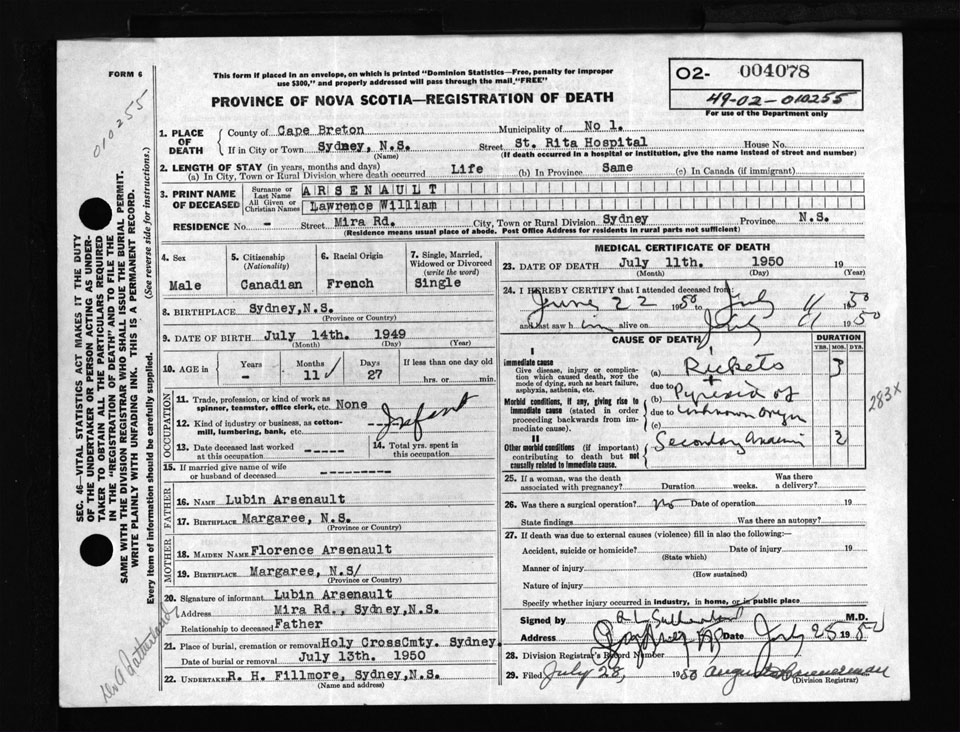 FORM 6
This form if placed in an envelope, on which is printed "Dominion Statistics—Free, penalty for improper
use $300," and properly addressed will pass through the mail "FREE"
O2- 004078
49-02-010255
For use of the Department only
PROVINCE OF NOVA SCOTIA—REGISTRATION OF DEATH
010255
SEC. 46—VITAL STATISTICS ACT MAKES IT THE DUTY
OF THE UNDERTAKER OR PERSON ACTING AS UNDER-
TAKER TO OBTAIN ALL THE PARTICULARS REQUIRED
IN THE "REGISTRATION OF DEATH" AND TO FILE THE
SAME WITH THE DIVISION REGISTRAR WHO SHALL ISSUE THE BURIAL PERMIT.
WRITE PLAINLY WITH UNFADING INK. THIS IS A PERMANENT RECORD.
Every item of information should be carefully supplied. (See reverse side for instructions.)
1. PLACE OF DEATH
County of Cape Breton Municipality of No 1.
If in City or Town Sydney, N.S. Street St. Rita Hospital House No.
(Name) (If death occurred in a hospital or institution, give the name instead of street and number)
2. LENGTH OF STAY (in years, months and days)
(a) In City, Town or Rural Division where death occurred Life (b) In Province Same (c) In Canada (if immigrant)
3. PRINT NAME OF DECEASED
Surname or Last Name ARSENAULT
All Given or Christian Names Lawrence William
RESIDENCE No. - Street Mira Rd. City, Town or Rural Division Sydney Province N.S.
(Residence means usual place of abode. Post Office Address for residents in rural parts not sufficient)
4. Sex Male
5. Citizenship (Nationality) Canadian
6. Racial Origin French
7. Single, Married, Widowed or Divorced (write the word) Single
8. BIRTHPLACE Sydney,N.S.
(Province or Country)
9. DATE OF BIRTH July 14th. 1949
(Month) (Day) (Year)
10. AGE in Years - Months 11 Days 27 If less than one day old
hrs. or min.
OCCUPATION
11. Trade, profession, or kind of work as
spinner, teamster, office clerk, etc. None
12. Kind of industry or business, as cotton-
mill, lumbering, bank, etc. --- Infant
13. Date deceased last worked
at this occupation -----
14. Total yrs. spent in
this occupation -----
15. If married give name of wife
or husband of deceased -----
FATHER
16. NAME Lubin Arsenault
17. BIRTHPLACE Margaree, N.S.
(Province or Country)
MOTHER
18. MAIDEN NAME Florence Arsenault
19. BIRTHPLACE Margaree, N.S/
(Province or Country)
20. Signature of informant Lubin Arsenault
Address Mira Rd., Sydney,N.S.
Relationship to deceased Father
21. Place of burial, cremation or removal Holy CrossCmty. Sydney.
Date of burial or removal July 13th. 1950
22. UNDERTAKER R. H. Fillmore, Sydney,N.S.
(Name and address)
MEDICAL CERTIFICATE OF DEATH
23. DATE OF DEATH July 11th. 1950 19
(Month) (Day) (Year)
24. I HEREBY CERTIFY that I attended deceased from:
June 22 1950 to July 11 1950
and last saw h im alive on July 11 1950
CAUSE OF DEATH
DURATION
YRS. MOS. DYS.
I
Immediate cause
Give disease, injury or complica-
tion which caused death, NOT the
mode of dying, such as heart failure,
asphyxia, asthenia, etc.
(a) Rickets 3
due to +
Morbid conditions, if any, giving rise to
immediate cause (stated in order
proceeding backwards from im-
mediate cause).
(b) Pyrexia of
due to unknown origin
(c)
II
Other morbid conditions (if important)
contributing to death but not
causally related to immediate cause.
Secondary Anaemia 2
283X
25. If a woman, was the death
associated with pregnancy? Duration weeks. Was there
a delivery?
26. Was there a surgical operation? No Date of operation 19
State findings Was there an autopsy?
27. If death was due to external causes (violence) fill in also the following:—
Accident, suicide or homicide? Date of injury 19
(State which)
Manner of injury
(How sustained)
Nature of injury
Specify whether injury occurred in industry, in home, or in public place
Signed by M.D.
Address Date July 25 1950
28. Division Registrar's Record Number
29. Filed July 28, 1950
(Division Registrar)